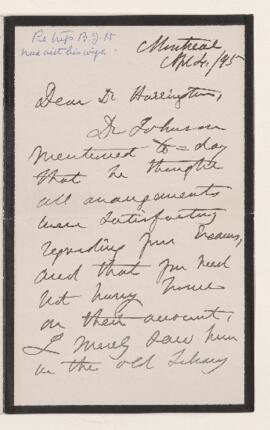 Re trip B.J.H
and with his wife.
Montreal
Apl 4/95
Dear Dr Harrington,
Dr Johnson
mentioned to=day
that he thought
all arrangements
were satisfactory
regarding your Exams,
and that you need
not hurry home
on their account,
I merely saw him
in the old Library